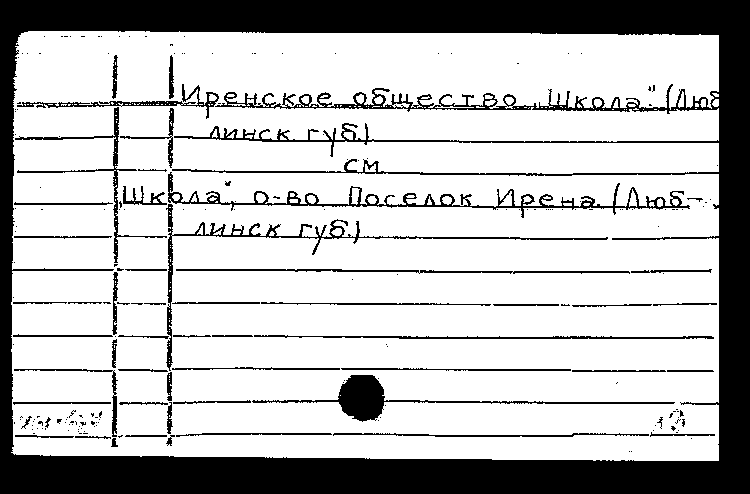 Иренское общество „Школа" (Люб
линск губ.)
см
„Школа", о-во Поселок Ирена (Люб-
линск губ.)